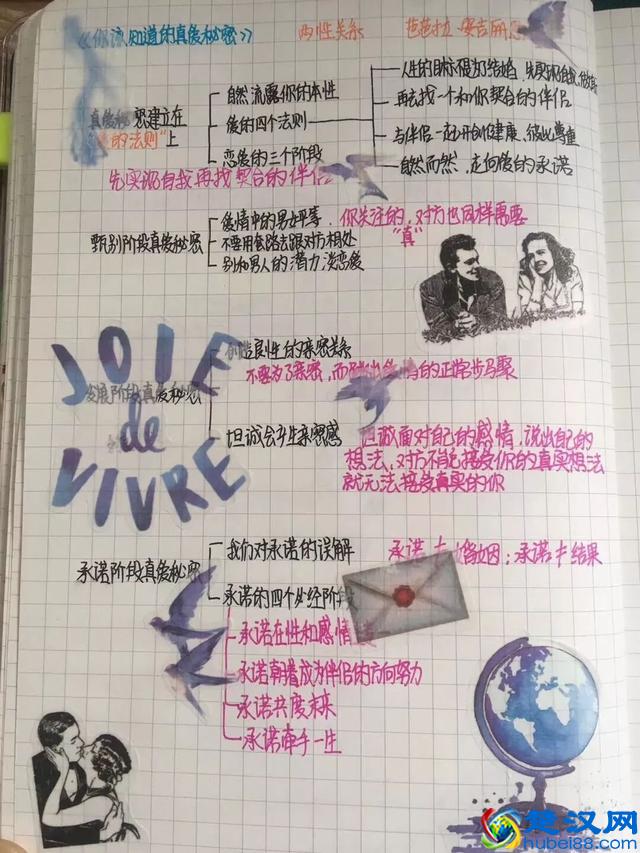 《你该知道的真爱秘密》 两性关系 芭芭拉·安吉丽思
人生的目标不是为了结婚,先实现自我,做自己
自然流露你的本性
再去找一个和你契合的伴侣
真爱秘密建立在
"爱的法则"上
爱的四个法则
与伴侣一起开创健康、彼此尊重
恋爱的三个阶段
自然而然,走向爱的承诺
先实现自我再找契合的伴侣
爱情中的男女平等,你关注的,对方也同样需要
甄别阶段真爱秘密
不要用套路去跟对方相处 "真"
别和男人的潜力谈恋爱
JOIE
创造良性的亲密关系
不要为了亲密,而 的正常步骤
发展阶段真爱秘密
de
坦诚会产生亲密感
坦诚面对自己的感情,说出自己的
想法,对方不能接受你的真实想法
就无法接受真实的你
VIVRE
我们对承诺的误解 承诺≠婚姻;承诺≠结果
承诺阶段真爱秘密
承诺的四个必经阶段
承诺在性和感情
承诺朝着成为伴侣的方向努力
承诺共度未来
承诺牵手一生
楚汉网
hubei88.com